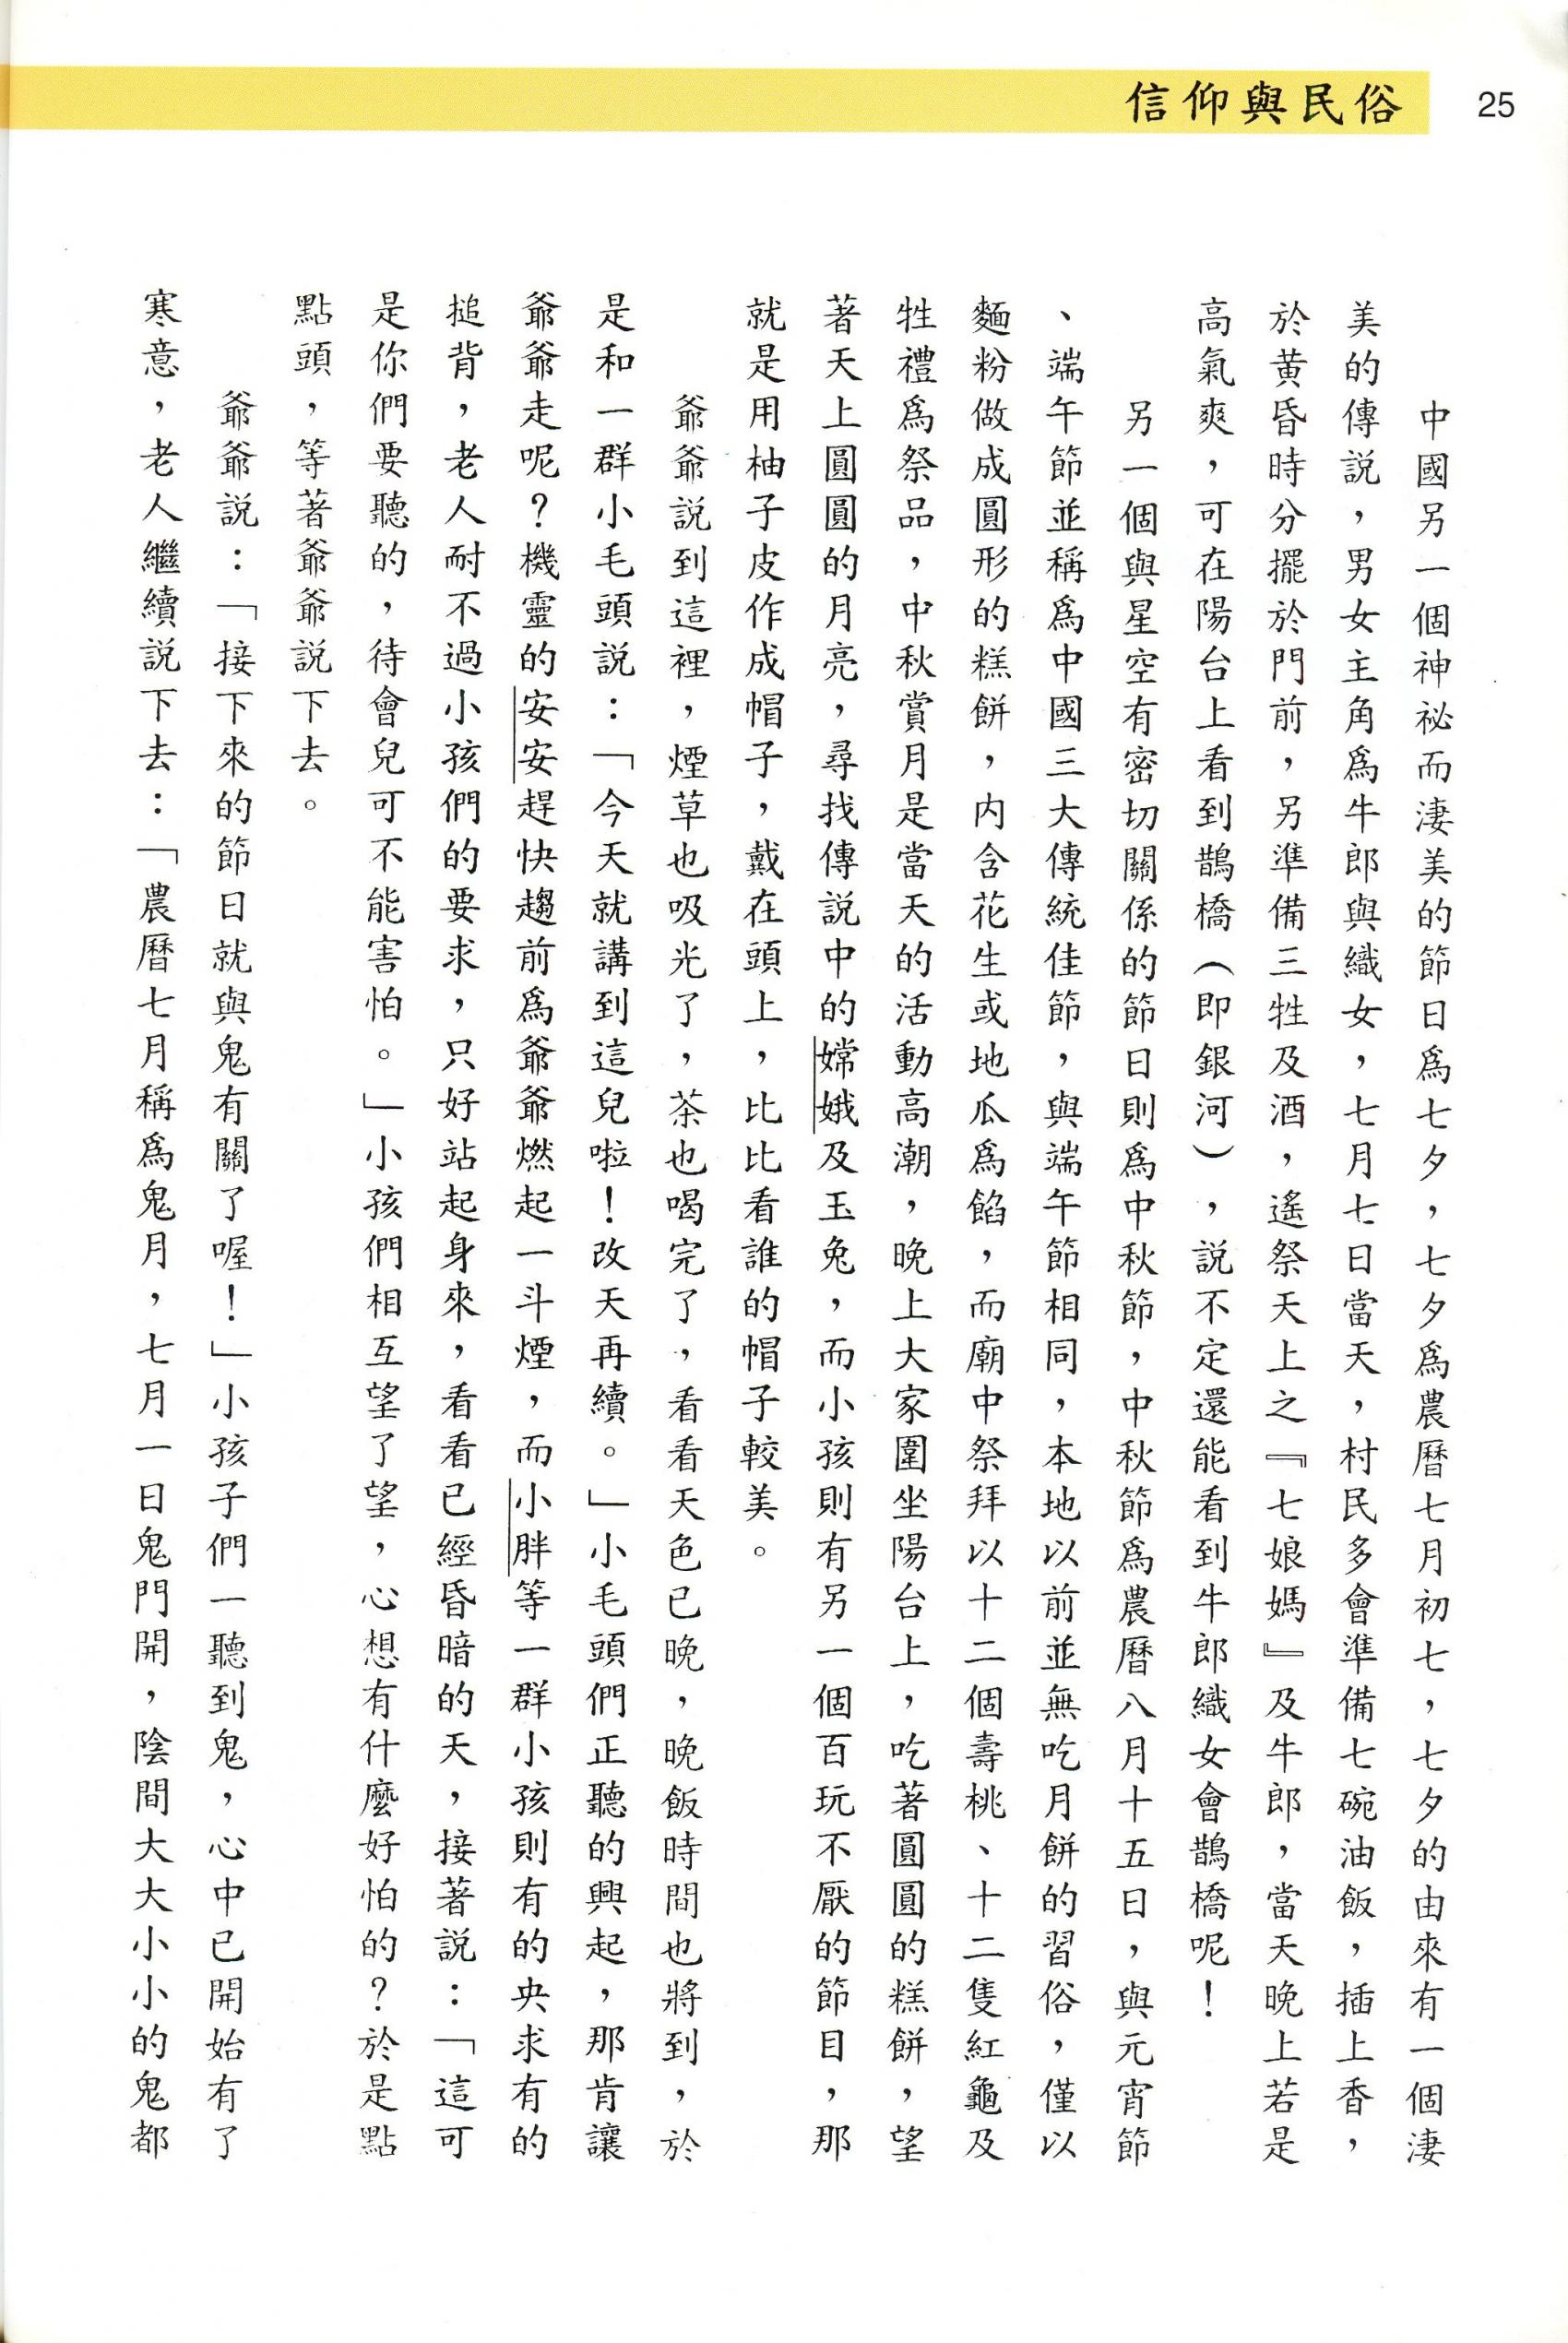 信仰與民俗
25
中國另一個神祕而淒美的節日爲七夕，七夕爲農曆七月初七，七夕的由來有一個淒
美的傳説，男女主角爲牛郎與織女，七月七日當天，村民多會準備七碗油飯，插上香，
於黃昏時分擺於門前，另準備三牲及酒，遙祭天上之『七娘媽』及牛郎，當天晚上若是
高氣爽，可在陽台上看到鵲橋（即銀河），説不定還能看到牛郎織女會鵲橋呢！
另一個與星空有密切關係的節日則爲中秋節，中秋節爲農曆八月十五日，與元宵節
、端午節並稱爲中國三大傳統佳節，與端午節相同，本地以前並無吃月餅的習俗，僅以
麵粉做成圓形的糕餅，内含花生或地瓜爲餡，而廟中祭拜以十二個壽桃、十二隻紅龜及
牲禮爲祭品，中秋賞月是當天的活動高潮，晚上大家圍坐陽台上，吃著圓圓的糕餅，望
著天上圓圓的月亮，尋找傳説中的嫦娥及玉兔，而小孩則有另一個百玩不厭的節目，那
就是用柚子皮作成帽子，戴在頭上，比比看誰的帽子較美。
爺爺説到這裡，煙草也吸光了，茶也喝完了，看看天色已晚，晚飯時間也將到，於
是和一群小毛頭説：「今天就講到這兒啦！改天再續。」小毛頭們正聽的興起，那肯讓
爺爺走呢？機靈的安安趕快趨前爲爺爺燃起一斗煙，而小胖等一群小孩則有的央求有的
搥背，老人耐不過小孩們的要求，只好站起身來，看看已經昏暗的天，接著説：「這可
是你們要聽的，待會兒可不能害怕。」小孩們相互望了望，心想有什麼好怕的？於是點
點頭，等著爺爺説下去。
爺爺説：「接下來的節日就與鬼有關了喔！」小孩子們一聽到鬼，心中已開始有了
寒意，老人繼續説下去：「農曆七月稱爲鬼月，七月一日鬼門開，陰間大大小小的鬼都